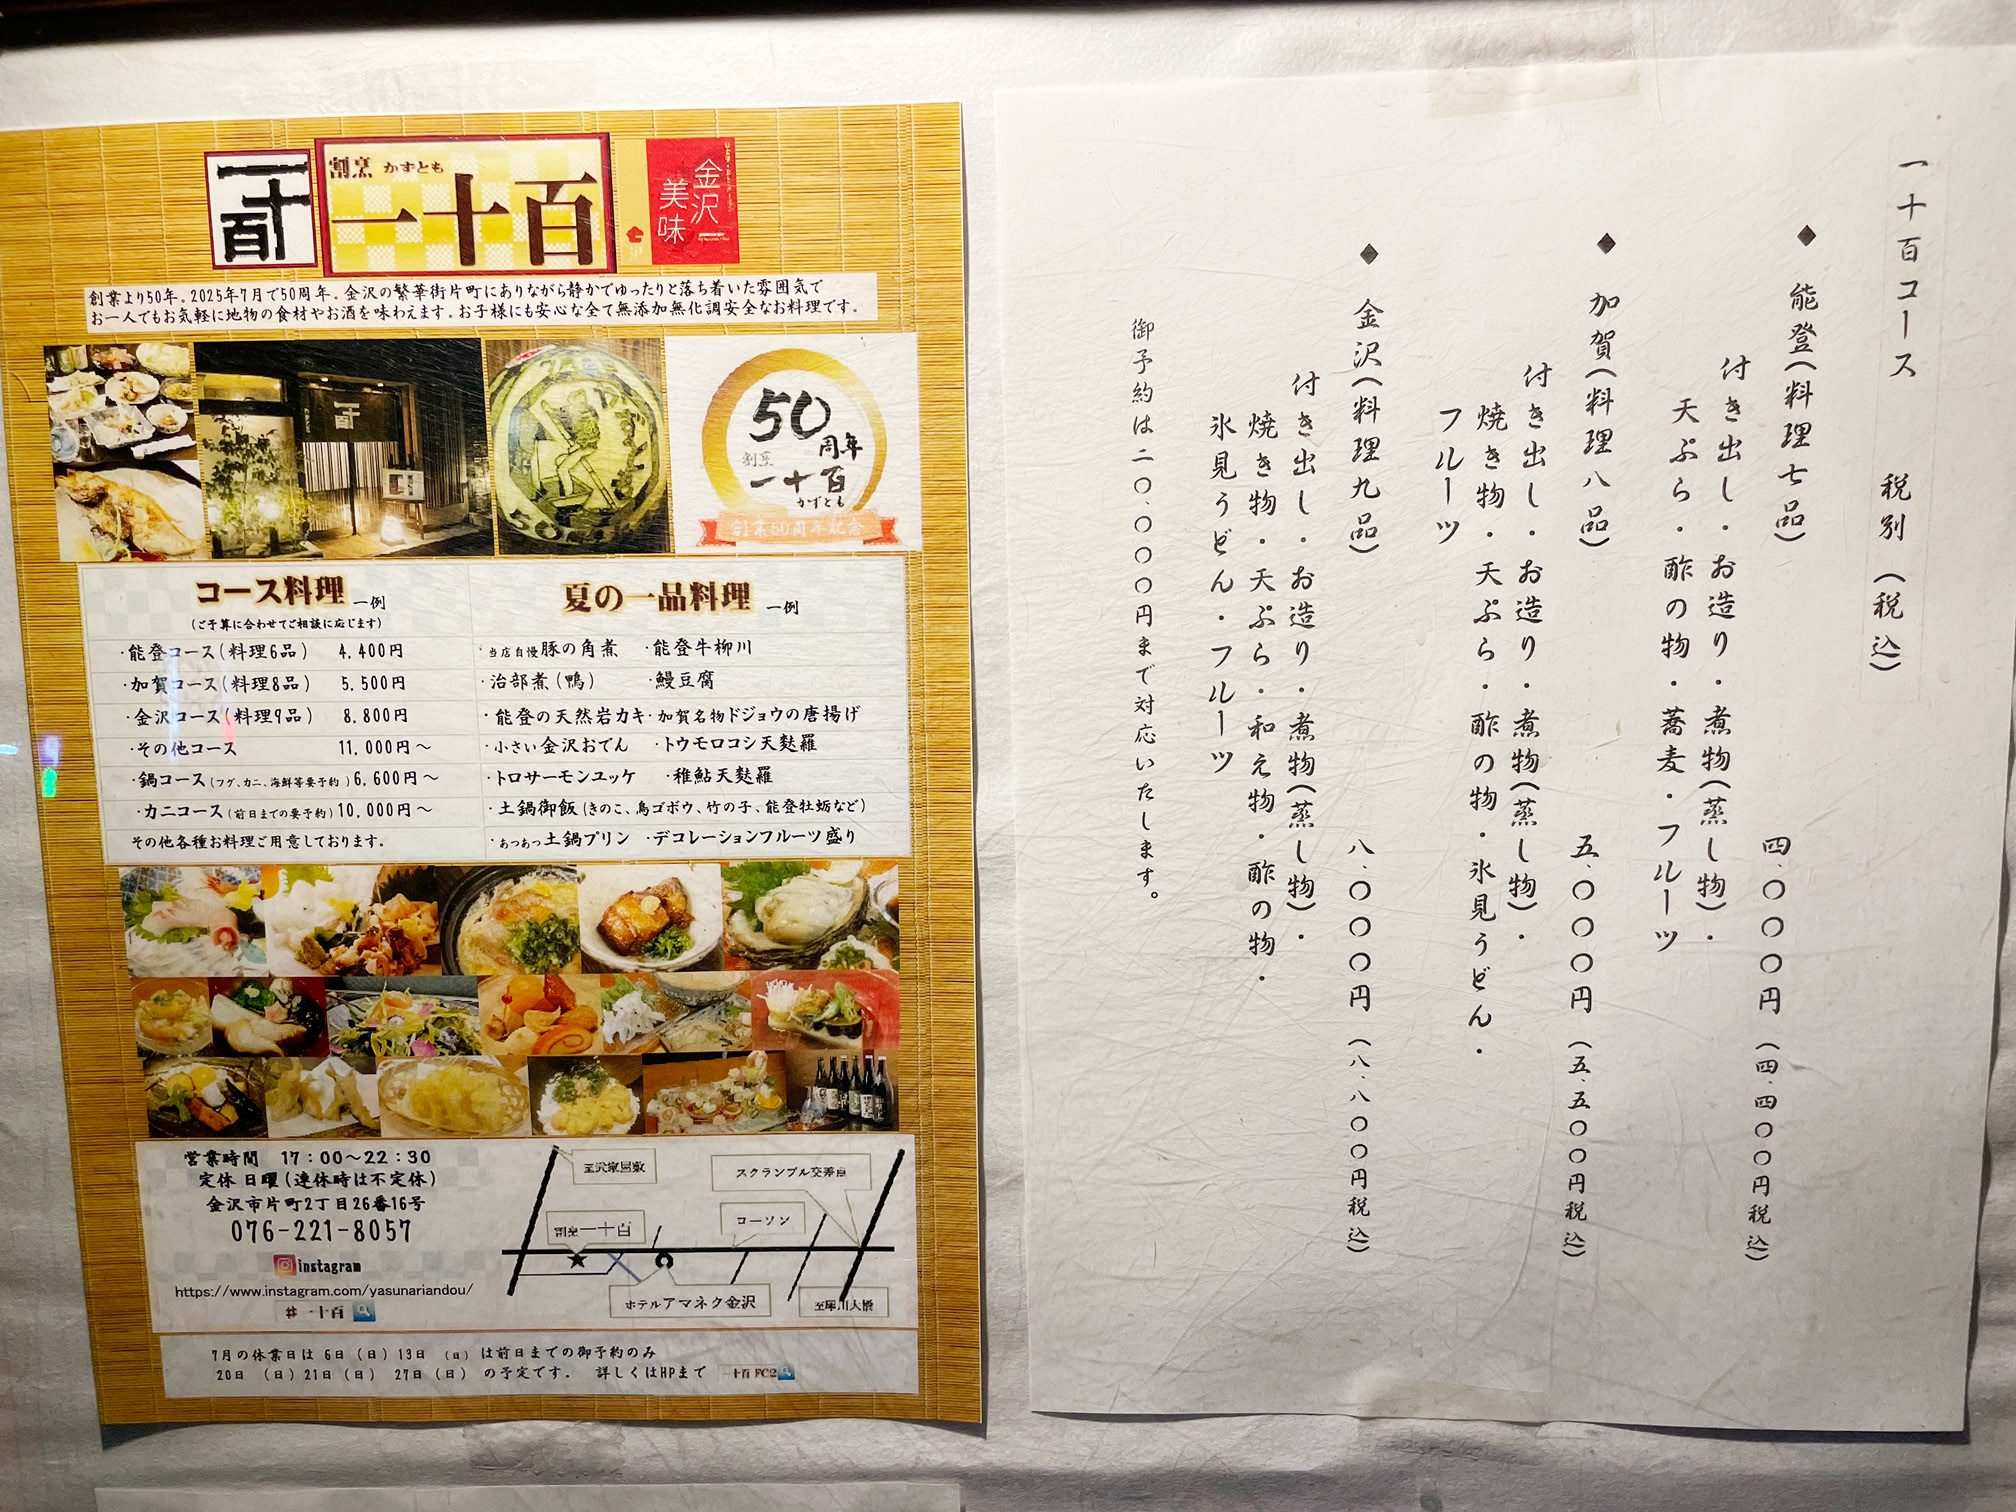 一十百
割烹 かずとも
一十百
金沢
美味
創業より50年。2025年7月で50周年。金沢の繁華街片町にありながら静かでゆったりと落ち着いた雰囲気で
お一人でもお気軽に地物の食材やお酒を味わえます。お子様にも安心な全て無添加無化調安全なお料理です。
一十百
50
50
周年
割烹
一十百
かずとも
創業50周年記念
コース料理 一例
(ご予算に合わせてご相談に応じます)
・能登コース(料理6品) 4,400円
・加賀コース(料理8品) 5,500円
・金沢コース(料理9品) 8,800円
・その他コース 11,000円～
・鍋コース(フグ、カニ、海鮮等要予約)6,600円～
・カニコース(前日までの要予約)10,000円～
その他各種お料理ご用意しております。
夏の一品料理 一例
・当店自慢豚の角煮 ・能登牛柳川
・治部煮(鴨) ・鰻豆腐
・能登の天然岩カキ・加賀名物ドジョウの唐揚げ
・小さい金沢おでん ・トウモロコシ天麩羅
・トロサーモンユッケ ・稚鮎天麩羅
・土鍋御飯(きのこ、鳥ゴボウ、竹の子、能登牡蛎など)
・あつあつ土鍋プリン ・デコレーションフルーツ盛り
営業時間 17：00～22：30
定休 日曜(連休時は不定休)
金沢市片町2丁目26番16号
076-221-8057
instagram
https://www.instagram.com/yasunariandou/
# 一十百
至沢家屋敷
スクランブル交差点
割烹一十百
ローソン
ホテルアマネク金沢
至犀川大橋
7月の休業日は 6日(日) 13日 (日) は前日までの御予約のみ
20日 (日) 21日(日) 27日(日) の予定です. 詳しくはHPまで 一十百 FC2
一十百コース 税別(税込)
◆ 能登(料理七品) 四.〇〇〇円(四.四〇〇円税込)
付き出し・お造り・煮物(蒸し物)・
天ぷら・酢の物・蕎麦・フルーツ
◆ 加賀(料理八品) 五.〇〇〇円(五.五〇〇円税込)
付き出し・お造り・煮物(蒸し物)・
焼き物・天ぷら・酢の物・氷見うどん・
フルーツ
◆ 金沢(料理九品) 八.〇〇〇円(八.八〇〇円税込)
付き出し・お造り・煮物(蒸し物)・
焼き物・天ぷら・和え物・酢の物・
氷見うどん・フルーツ
御予約は二〇.〇〇〇円まで対応いたします。